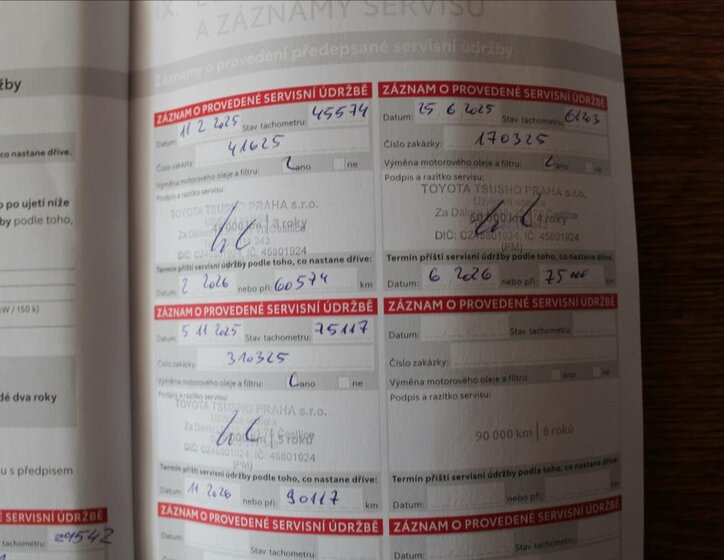 A ZÁZNAMY SERVISU
Záznamy o provedení předepsané servisní údržby
žby
co nastane dříve.
po ujetí níže
by podle toho,
W / 150 k)
dé dva roky
u s předpisem
É SERVISNÍ ÚDRŽBĚ
tachometru: 29542
ZÁZNAM O PROVEDENÉ SERVISNÍ ÚDRŽBĚ
Datum: 11 2 2025 Stav tachometru: 45574
Číslo zakázky: 41625
Výměna motorového oleje a filtru: ano ne
Podpis a razítko servisu:
TOYOTA TSUSHO PRAHA s.r.o.
Užitková vozidla
km | 3 roky
DIČ: CZ45801924, IČ: 45801924
Termín příští servisní údržby podle toho, co nastane dříve:
Datum: 2 2026 nebo při: 60574 km
ZÁZNAM O PROVEDENÉ SERVISNÍ ÚDRŽBĚ
Datum: 25 6 2025 Stav tachometru:
Číslo zakázky: 170325
Výměna motorového oleje a filtru: ano ne
Podpis a razítko servisu:
TOYOTA TSUSHO PRAHA s.r.o.
km | 4 roky
DIČ: CZ45801924, IČ: 45801924
(PM)
Termín příští servisní údržby podle toho, co nastane dříve:
Datum: 6 2026 nebo při: 75 000 km
ZÁZNAM O PROVEDENÉ SERVISNÍ ÚDRŽBĚ
Datum: 5 11 2025 Stav tachometru: 75117
Číslo zakázky: 310325
Výměna motorového oleje a filtru: ano ne
Podpis a razítko servisu:
TOYOTA TSUSHO PRAHA s.r.o.
Užitková vozidla
km | 5 roků
DIČ: CZ45801924, IČ: 45801924
(PM)
Termín příští servisní údržby podle toho, co nastane dříve:
Datum: 11 2026 nebo při: 90117 km
ZÁZNAM O PROVEDENÉ SERVISNÍ ÚDRŽBĚ
Datum: Stav tachometru:
Číslo zakázky:
Výměna motorového oleje a filtru: ano ne
Podpis a razítko servisu:
90 000 km | 6 roků
Termín příští servisní údržby podle toho, co nastane dříve:
Datum: nebo při: km
ZÁZNAM O PROVEDENÉ SERVISNÍ ÚDRŽBĚ
Datum: Stav tachometru:
ZÁZNAM O PROVEDENÉ SERVISNÍ ÚDRŽBĚ
Datum: Stav tachometru: